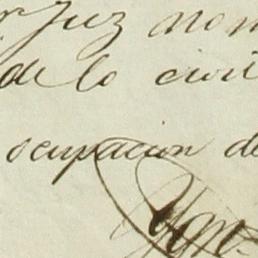 r Juz nom
de lo civil
ocupacion de